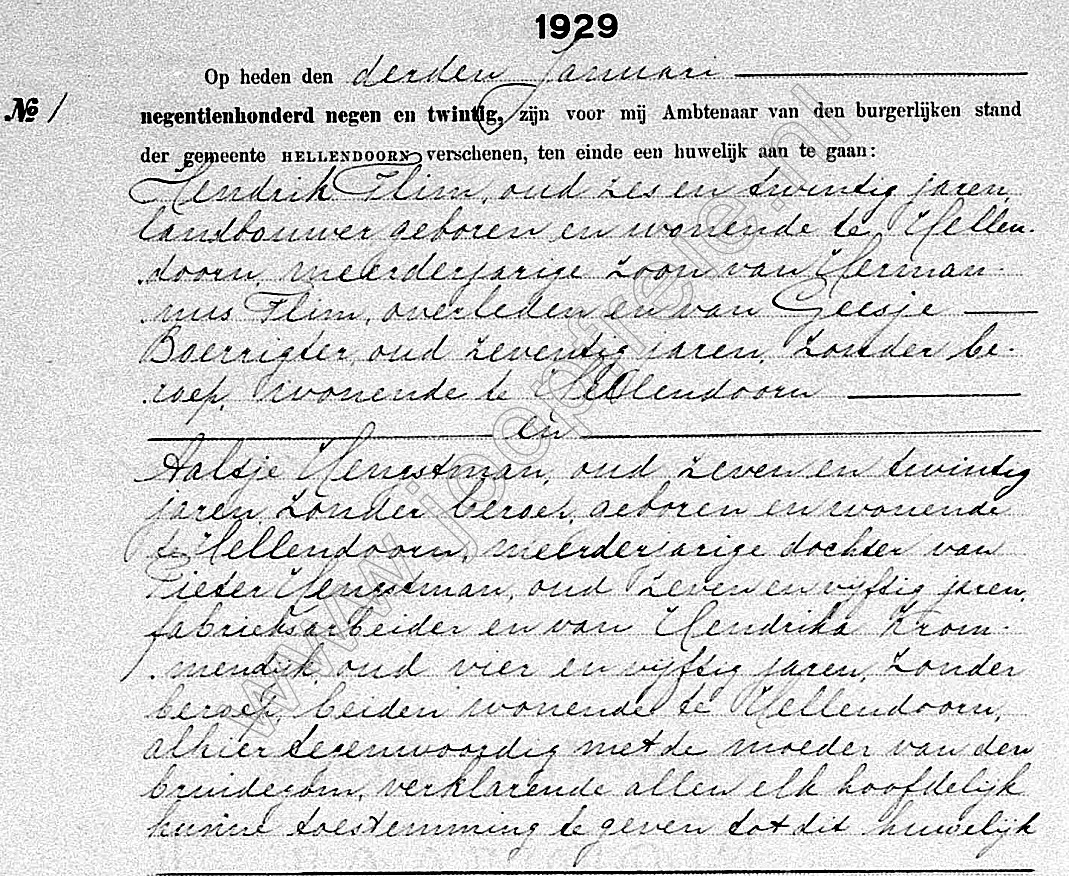 1929
Op heden den derden Januari
No 1
negentienhonderd negen en twintig, zijn voor mij Ambtenaar van den burgerlijken stand
der gemeente HELLENDOORN verschenen, ten einde een huwelijk aan te gaan:
Hendrik Flim, oud zes en twintig jaren,
landbouwer geboren en wonende te Hellen-
doorn, meerderjarige zoon van Herman-
nus Flim, overleden en van Geesje
Boerrigter, oud zeventig jaren, zonder be-
roep, wonende te Hellendoorn
en
Aaltje Hengstman, oud zeven en twintig
jaren, zonder beroep, geboren en wonende
te Hellendoorn, meerderjarige dochter van
Pieter Hengstman, oud zeven en vyftig jaren,
fabrieksarbeider en van Hendrika Krom-
mendyk, oud vier en vyftig jaren, zonder
beroep, beiden wonende te Hellendoorn,
alhier tegenwoordig met de moeder van den
bruidegom, verklarende allen elk hoofdelijk
hunne toestemming te geven tot dit huwelijk
www.joopfreie.nl